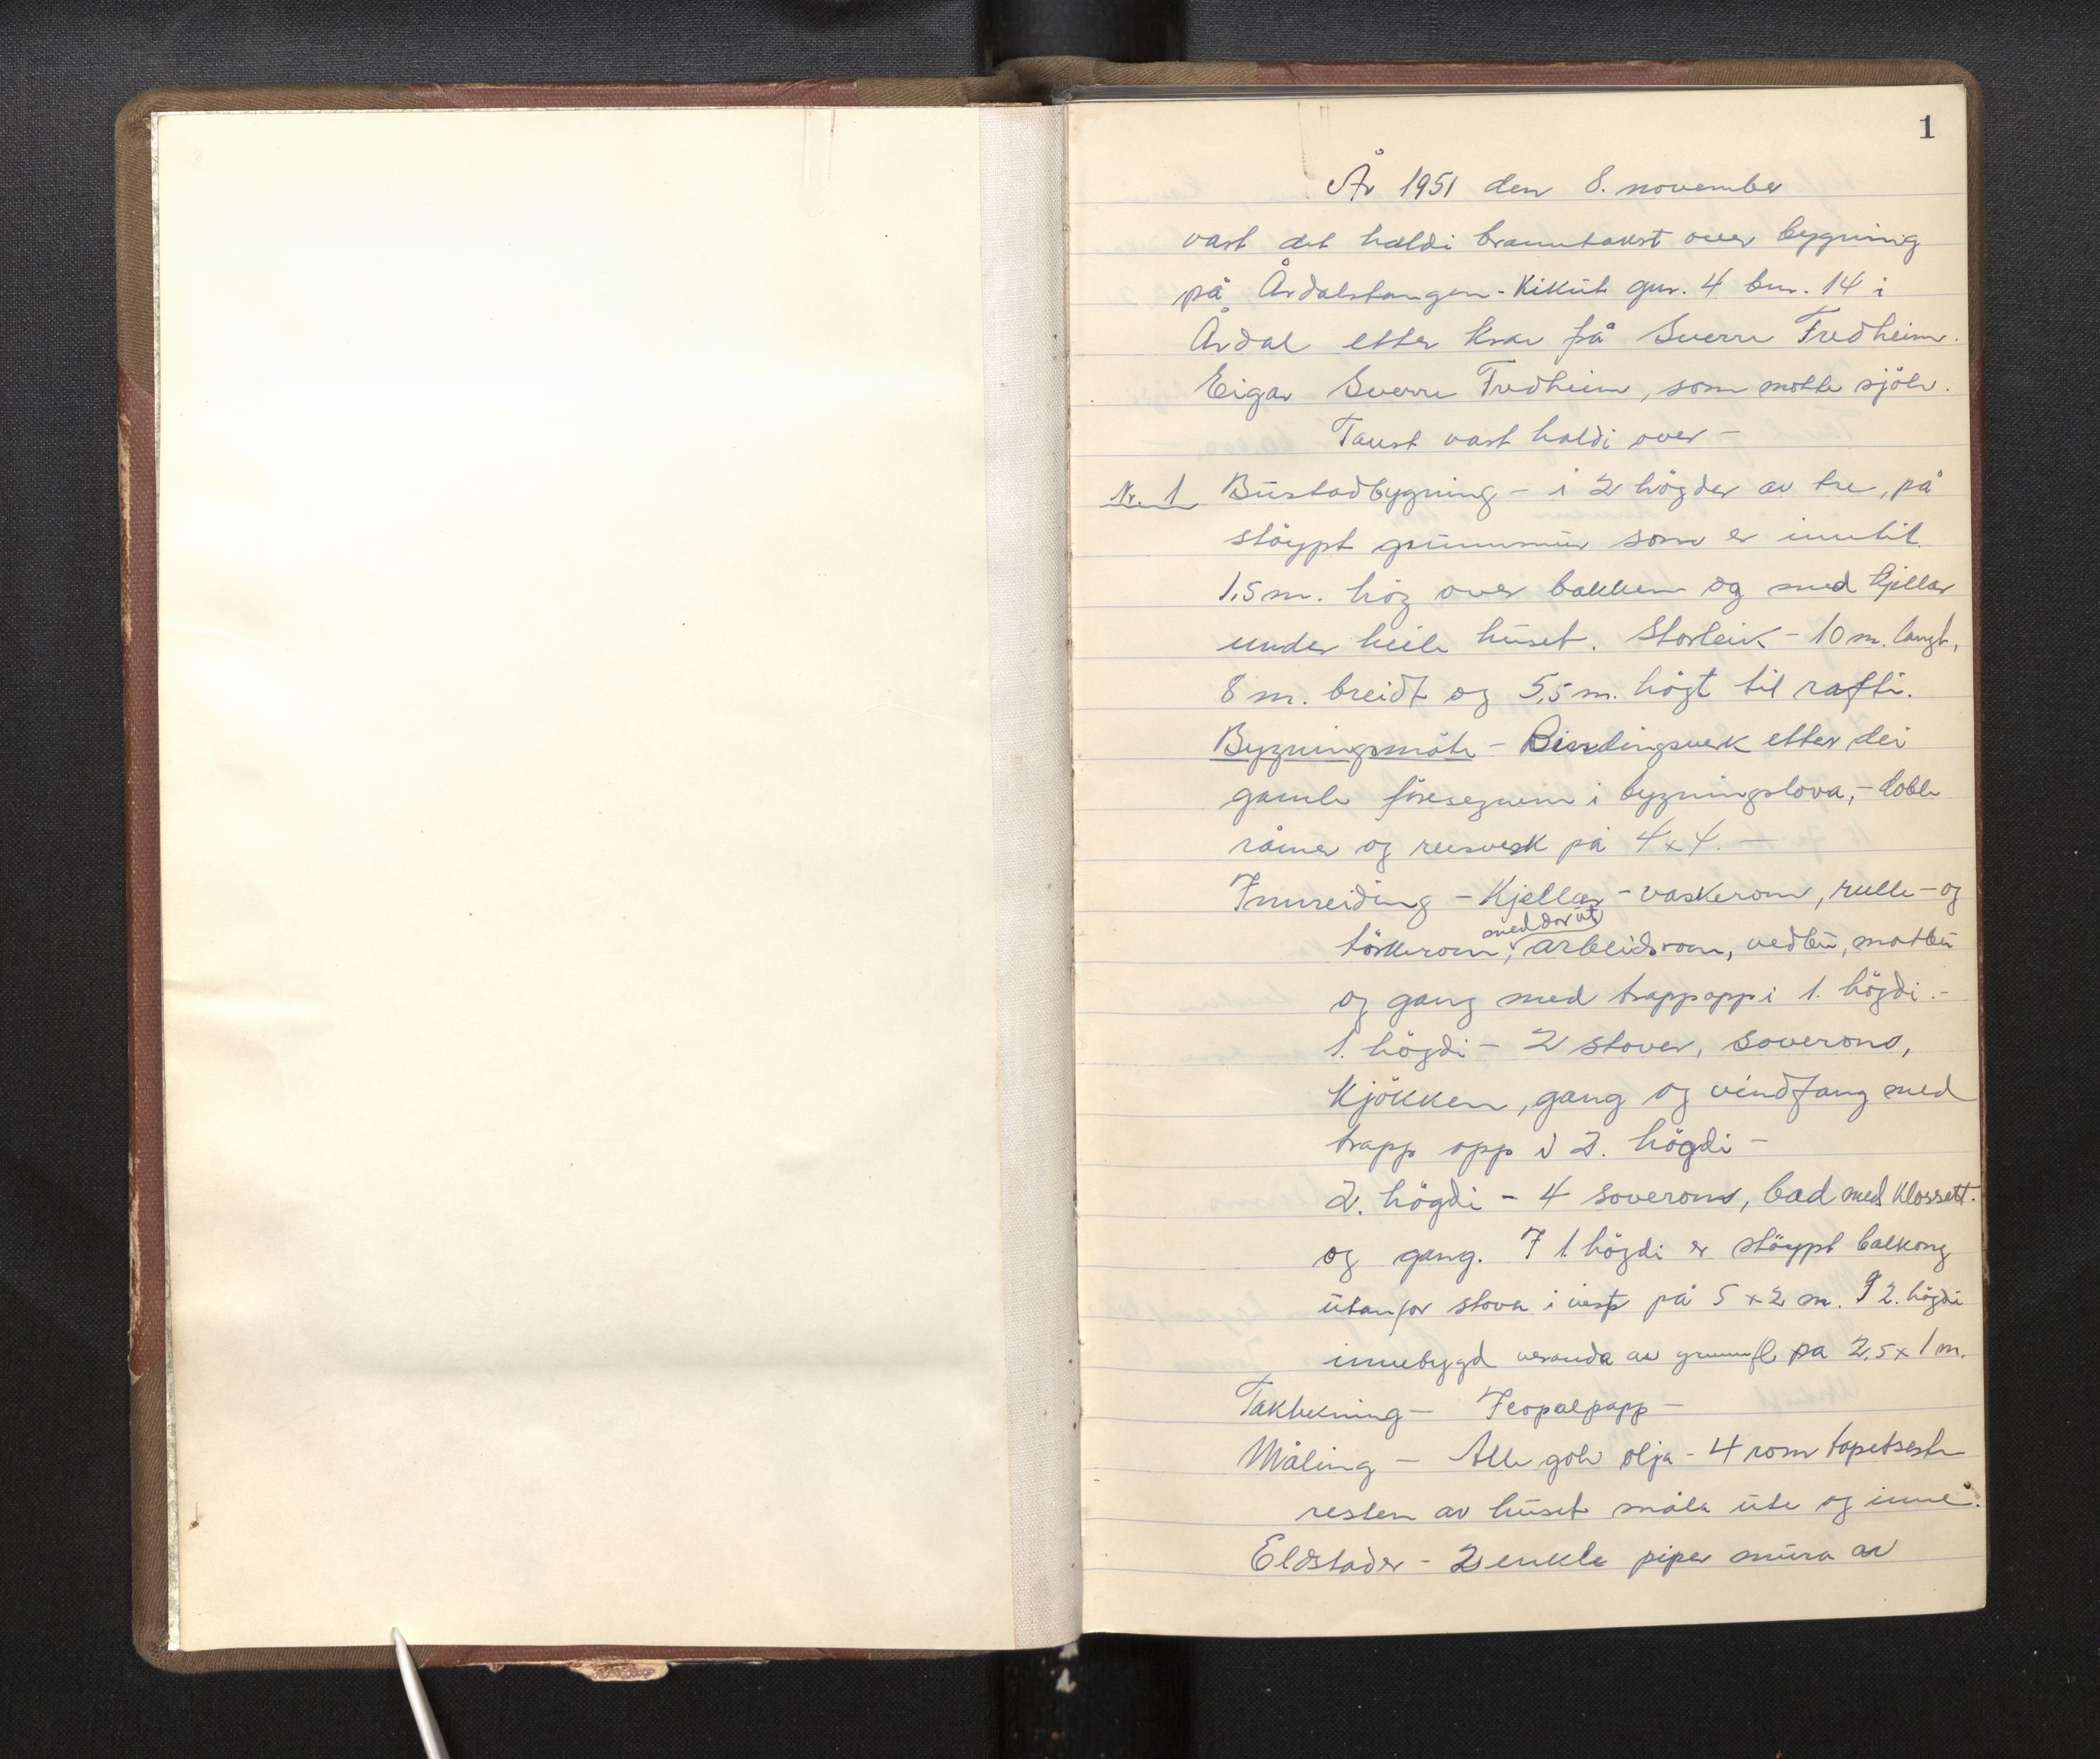 1
År 1951 den 8. november
vart det haldi branntakst over bygning
på Årdalstangen - Kikut gnr. 4 bnr. 14 i
Årdal etter krav frå Sverre Fredheim.
Eigar Sverre Fredheim, som møtte sjölv.
Takst vart haldi over -
Nr. 1 Bustadbygning - i 2 högder av tre, på
stöypt grunnmur som er inntil
1,5 m. hög over bakken og med kjellar
under heile huset. Storleik - 10 m. langt,
8 m. breidt og 5,5 m. högt til rafti.
Bygningsmåte - Bindingsverk etter dei
gamle föresegnene i bygningslova, - doble
råmer og reisverk på 4 x 4. -
Innreiding - Kjellar - vaskerom, rulle- og
med dör ut
törkerom, arbeidsrom, vedbu, matbu
og gang med trapp opp i 1. högdi. -
1. högdi - 2 stover, soverom,
kjökken, gang og vindfang med
trapp opp i 2. högdi -
2. högdi - 4 soverom, bad med klossett.
og gang. I 1. högdi er stöypt balkong
utanfor stova i vest på 5 x 2 m. I 2. högdi
innebygd veranda av grunnfl. på 2,5 x 1 m.
Taktekning - Icopalpapp -
Måling - Alle golv olja - 4 rom tapetserte
resten av huset måla ute og inne.
Eldstader - 2 enkle piper mura av